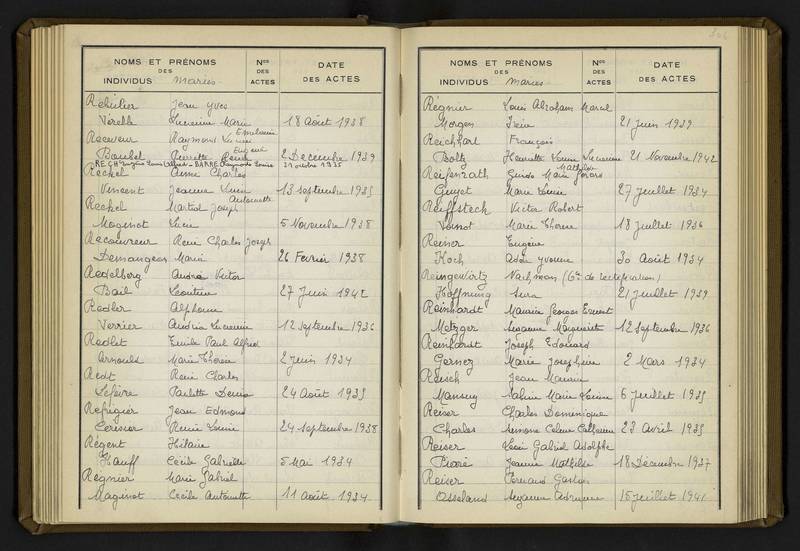 NOMS ET PRÉNOMS DES INDIVIDUS Mariés
Nos DES ACTES
DATE DES ACTES
Jean Yves
Verelle Lucienne Marie 18 Août 1938
Receveur Raymond Lucien Emilien
Eugénie
Boubel Pierrette Renée 2 Décembre 1939
RECH Eugène Louis Alfred - BARRÉ Louise 31 octobre 1935
Reckel Charles
Vincent Jeanne 13 septembre 1935
Antoinette
Reckel Martial Joseph
Maginot Lucie 5 Novembre 1938
Recouvreur René Charles Joseph
Demangeon Marie 26 Février 1938
Redelberg André Victor
Bail Léontine 27 Juin 1942
Redler Alphonse
Verrier Lucienne 12 septembre 1936
Redlet Emile Paul Alfred
Arnould Marie Thérèse 2 Juin 1934
Redt René Charles
Lefèvre Paulette Denise 24 Août 1935
Refrigier Jean Edmond
Cerisier Louise 24 septembre 1938
Régent Hilaire
Hauff Cécile Gabrielle 5 Mai 1934
Régnier Marie Gabriel
Maginot Cécile Antoinette 11 Août 1934
306
NOMS ET PRÉNOMS DES INDIVIDUS Mariés
Nos DES ACTES
DATE DES ACTES
Régnier Louis Abraham Marcel
Morgen 21 Juin 1939
Reichhart François
Boltz Henriette Louise Lucienne 21 Novembre 1942
Mathilde
Reifenrath Guido Marie Gérard
Guyot Marie Louise 27 Juillet 1934
Reiffsteck Victor Robert
Voinot Marie Thérèse 18 Juillet 1936
Reiner Eugène
Koch Yvonne 30 Août 1934
Reingewirtz Nachman (Gt de rectification)
Hoffnung Sura 21 Juillet 1939
Reinhardt Maurice Georges Ernest
Metzger Suzanne Marguerite 12 Septembre 1936
Reinhardt Joseph Edouard
Gernez Marie Joséphine 2 Mars 1934
Reisch Jean
Mansuy Marie Louise 6 Juillet 1935
Reiser Charles Dominique
Charles Simone Catherine 23 Avril 1935
Reiser Léon Gabriel Adolphe
Pierré Jeanne Mathilde 18 Décembre 1937
Reiser Fernand Gaston
Osseland Suzanne 15 Juillet 1941